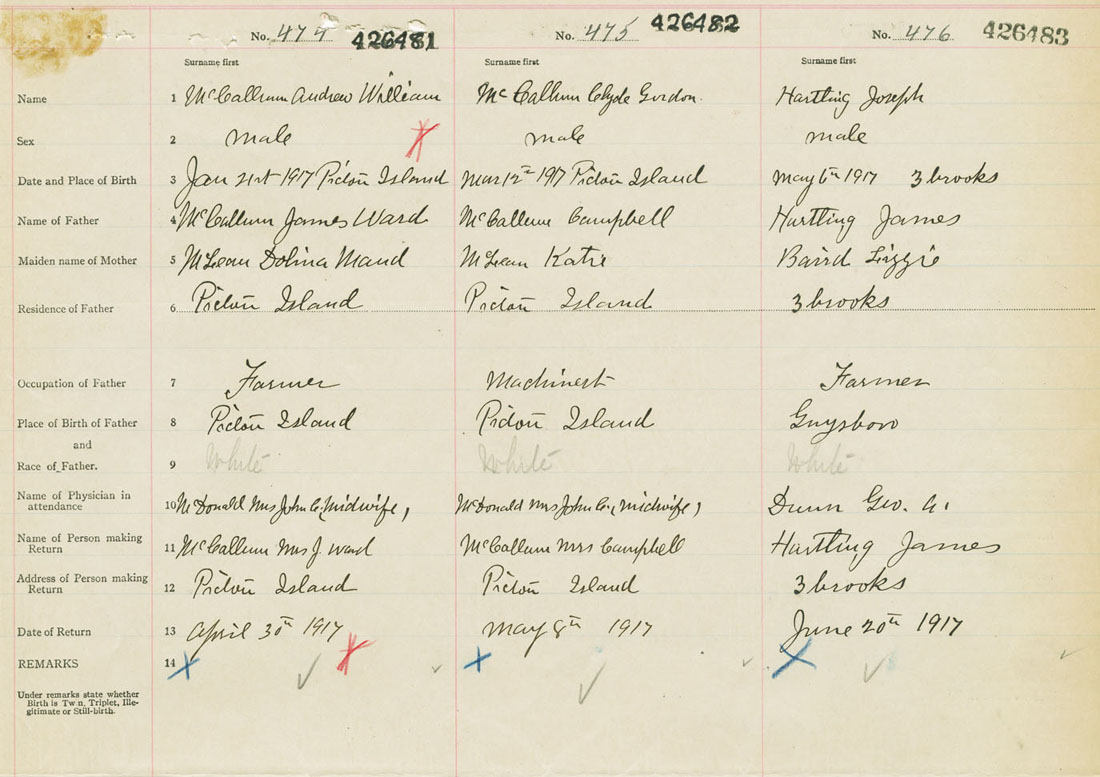 No. 474 426481 No. 475 426482 No. 476 426483
Surname first Surname first Surname first
Name 1 McCallum Andrew William McCallum Clyde Gordon. Hartling Joseph
Sex 2 male male male
Date and Place of Birth 3 Jan 21st 1917 Pictou Island Mar 12th 1917 Pictou Island May 6th 1917 3 brooks
Name of Father 4 McCallum James Ward McCallum Campbell Hartling James
Maiden name of Mother 5 McLean Dolina Maud McLean Katie Baird Lizzie
Residence of Father 6 Pictou Island Pictou Island 3 brooks
Occupation of Father 7 Farmer Machinest Farmer
Place of Birth of Father 8 Pictou Island Pictou Island Guysboro
and
Race of Father. 9 White White White
Name of Physician in
attendance 10 McDonald Mrs John C. (midwife) McDonald Mrs John C. (midwife) Dunn Geo. A.
Name of Person making
Return 11 McCallum Mrs J. Ward McCallum Mrs Campbell Hartling James
Address of Person making
Return 12 Pictou Island Pictou Island 3 brooks
Date of Return 13 April 30th 1917 May 8th 1917 June 20th 1917
REMARKS 14
Under remarks state whether
Birth is Twin, Triplet, Ille-
gitimate or Still-birth.